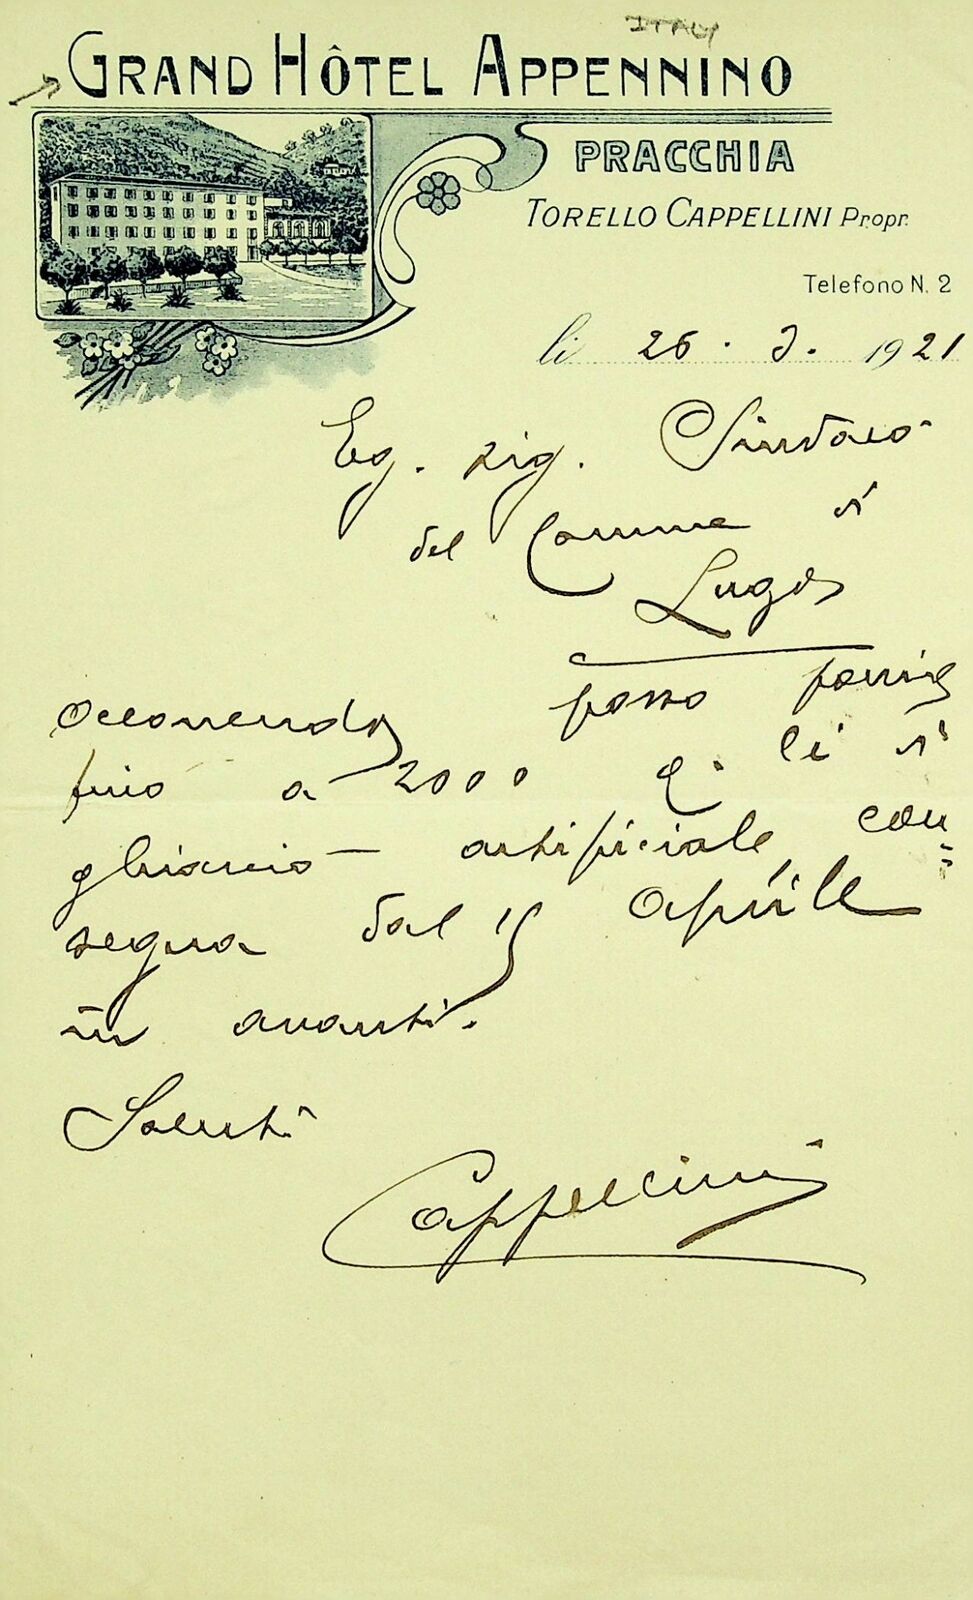 ITALY
GRAND HÔTEL APPENNINO
PRACCHIA
TORELLO CAPPELLINI Propr.
Telefono N. 2
li 26 . 3 . 1921
Eg. sig. Sindaco
del Comune di
Lugo
Occorrendo posso fornire
fino a 2000 q. li di
ghiaccio artificiale con=
segna dal 15 aprile
in avanti.
Saluti
Cappellini